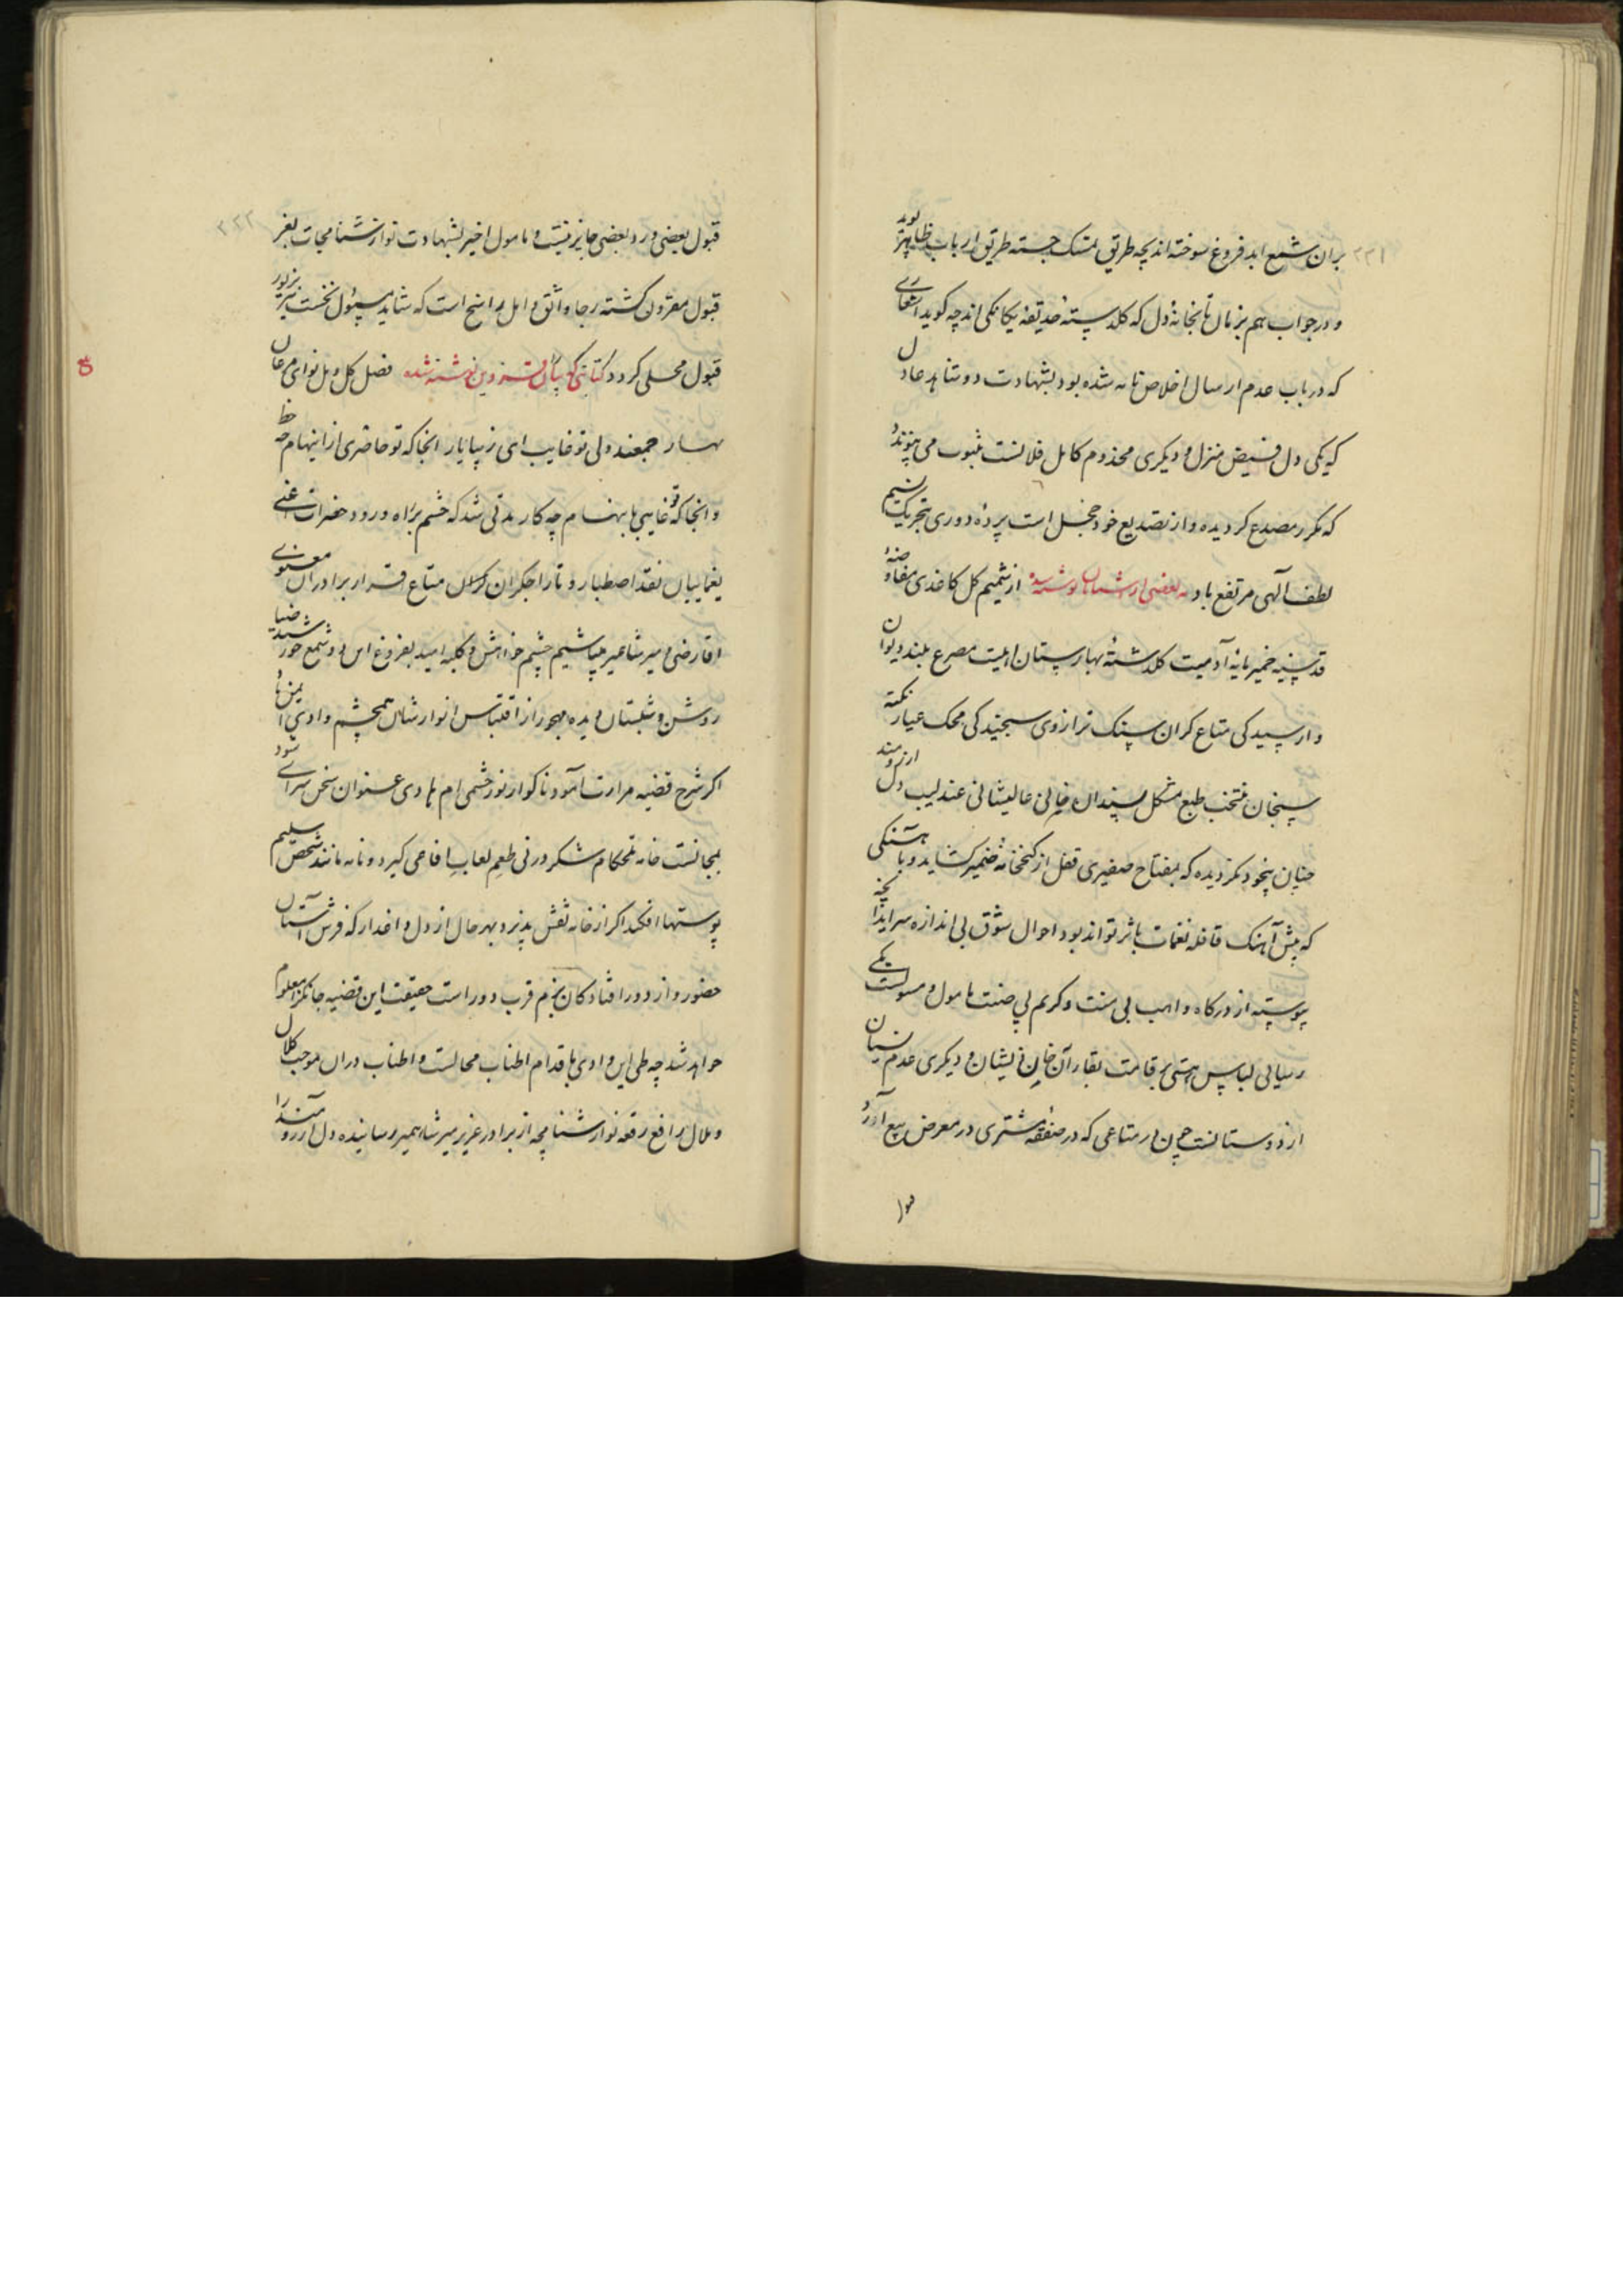 ۲۲۱
بران شمع ابد فروغ سوخته اند بچه طریق تمسک جسته طریق ارباب ظاهر
و در جواب هم بزبان دل که گلدسته حدیقه یکانکی اند چه کوید
که در باب عدم ارسال اخلاص نامه شده بود بشهادت دو شاهد عادل
که یکی دل فیض منزل و دیکری مخدوم کامل فلانست ثبوت می پیوندد
که مکرر مصدع کردیده و از تصدیع خود خجل است پرده دوری بتحریک نسیم
لطف آلهی مرتفع باد به بعضی از نوشته شده از شمیم کل کاغذی مفاوضهٔ
قدسیه خمیر مایهٔ آدمیت کلدستهٔ بهارستان اهلیت مصرع بلند دیوان
وارسیدکی متاع کران سنک ترازوی سنجیدکی محک عیار نکته
سنجان منتخب طبع مشکل پسندان عالیشانی عندلیب دل ارزومند
چنان بیخود نکردیده که بمفتاح صفیری قفل از کنجخانهٔ ضمیر کشاید و باهستکی
که پیش آهنک قافله نغمات باثر تواند بود احوال شوق بی اندازه سراید آنچه
پیوسته از درکاه واهب بی منت و کریم بی ضنت مامول و مسولست یکی
رسایی لباس هستی بر قامت بقای آن ذیشان و دیکری عدم نسیان
از دوستانست چون هر متاعی که در صفقهٔ مشتری در معرض بیع آرد
قبول
۲۲۲
قبول بعضی و رد بعضی جایز نیست و مامول اخیر بشهادت نوازشنامجات بعز
قبول مقرون کشته رجا واثق و امل راسخ است که شاید مسئول نخست نیز بزیور
قبول محلی کردد کتابتی که نوشته شده فصل کل و مل نوای مرغان
بهار جمعند ولی تو غایب ای زیبا یار انجا که تو حاضری از اینهام چه حظ
وانجا که تو غایبی باینهام چه کار مدتی شد که چشم براه ورود حضرات اعنی
یغماییان نقد اصطبار و تاراجکران متاع قرار برادران معنوی
اقارضی و میر شاهمیر میباشیم چشم خواهش و کلبه امید بفروغ این دو شمع خورشید ضیا
روشن و شبستان دیده مهجور از اقتباس انوار شان همچشم وادی ایمن باد
اکر شرح قضیه مرارت آمود ناکوار نورچشمی ام هادی عنوان سخن سرای شود
بمجالست خامه تلخکام شکر در نی طعم لعاب افاعی کیرد و نامه مانند شخص سلیم
پوستها افکند اکر از خامه نقش پذیرد بهر حال از دل داغدار که فرش آستان
حضور و از دور افتادکان بزم قرب دور است حقیقت این قضیه جانکزا معلوم
خواهد شد چه طی این وادی باقدام اطناب محالست و اطناب دران موجب کلال
و ملال رافع رقعه نوازشنامچه از برادر عزیز میر شاهمیر رسانیده دل آرزومند را